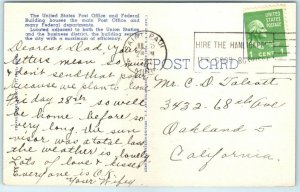 The United States Post Office and Federal
Building houses the main Post Office and
many Federal departments.
Located adjacent to both the United States
and the business district, the building serves
the city with a maximum of efficiency.
Dearest Dad, your
letters mean so
don't send that
because we plan to leave
Friday 28th so will
be home before so
very long. The sun
visor was a total loss
the weather is lovely
Lots of love & kisses
everyone is O.K.
Your Wifey
PAUL
HIRE THE HANDI
1 CENT
POST CARD
Mr. C. D. Talcott
3432-68th Ave
Oakland 5
California.